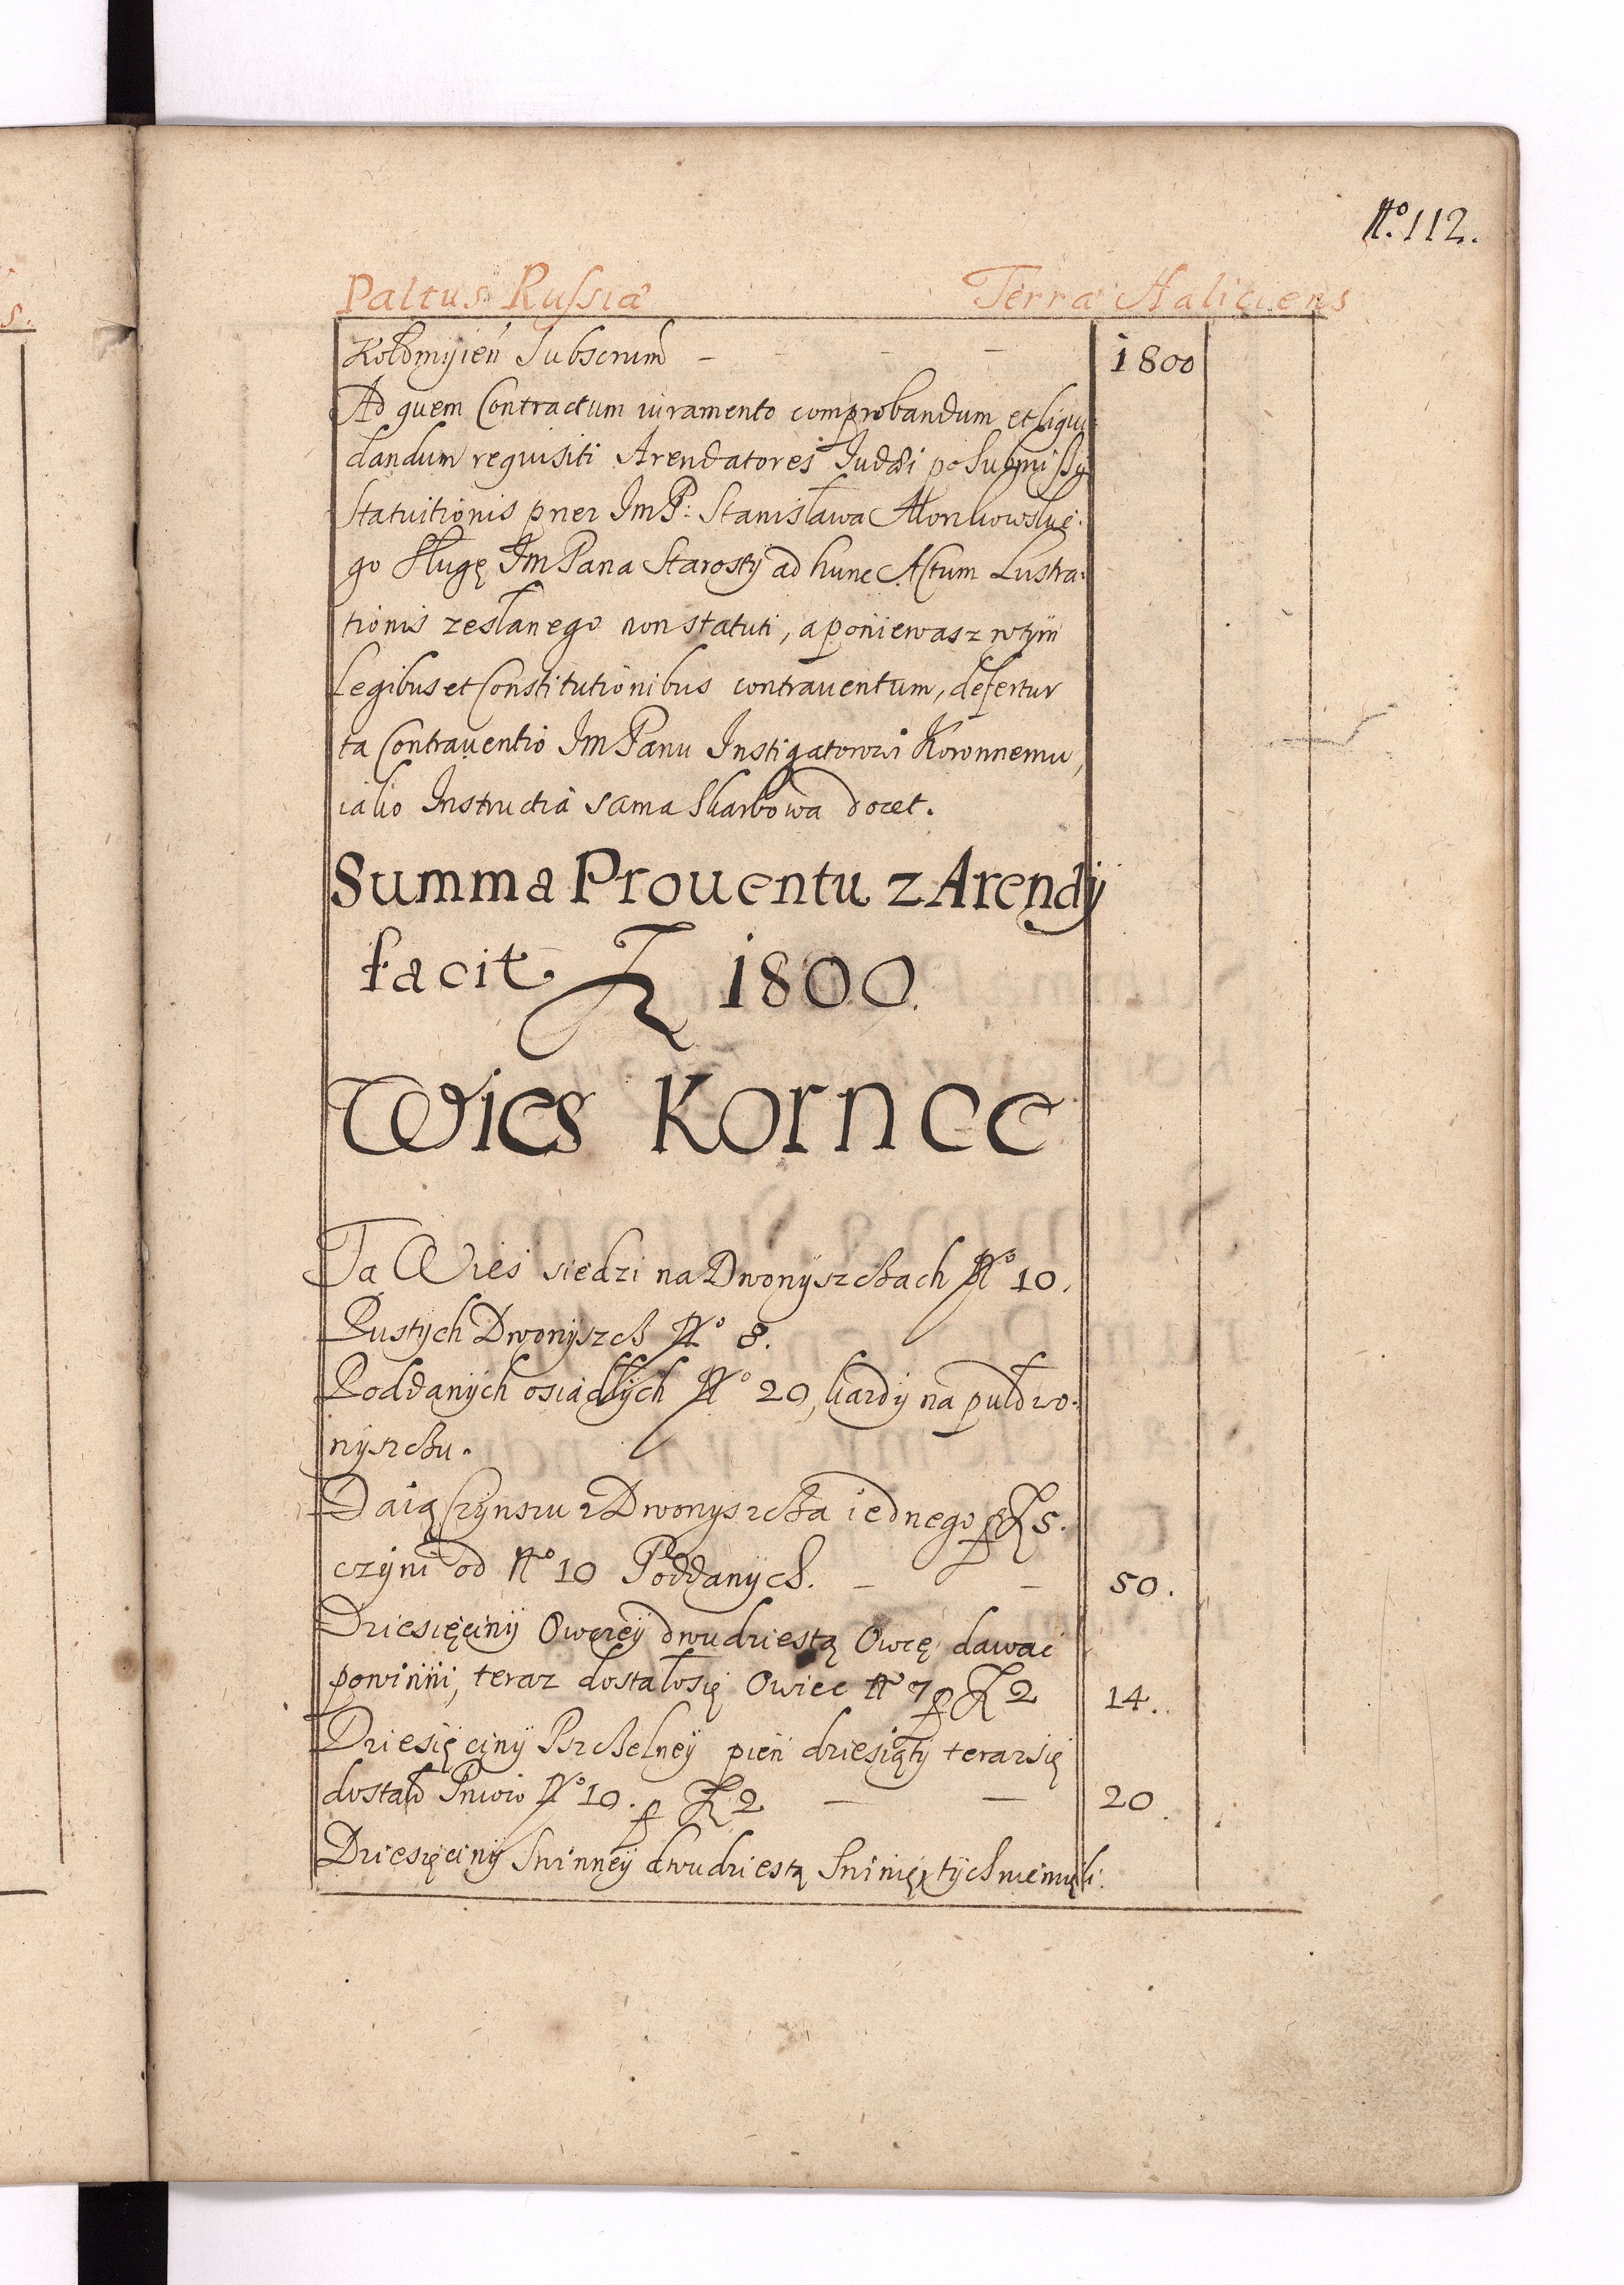 No. 112.
Paltus Russiæ Terra Haliciens
Kołomyień Subscrum – – – 1800
Ad quem Contractum iuramento comprobandum et liqui
dandum requisiti Arendatores Judæi po Submissÿ
Statuitionis przez ImP: Stanisława
go Sługę ImPana Starosty ad hunc Actum Lustra-
tionis zesłanego non statuti, a poniewasz w tym
Legibus et Constitutionibus contrauentum, defertur
ta Contrauentio ImPanu Instigatorowi Koronnemu,
iako Instructia sama Skarbowa docet.
Summa Prouentu z Arendÿ
facit Zł 1800.
Wies Kornee
Ta Wieś siedzi na Dworzyszczach No 10.
Pustych Dworzyszcz No 8.
Poddanÿch osiadłÿch No 20, kazdÿ na puł dwo-
rzyszczu.
Daią Czÿnszu z Dworzyszcza iednego p Zł 5.
czÿni od No 10 Poddanÿch. – – 50.
Dziesięcinÿ Owczeÿ dwudziestą Owcę dawać
powinni, teraz dostało się Owiec No 7 p Zł 2 14..
Dziesięcinÿ Pszczelneÿ pień dziesiątÿ teraz się
dostało Pniow No 10. p Zł 2 – – 20.
Dziesięcinÿ Swinneÿ dwudziestą Swinię, tÿch nie mieli.